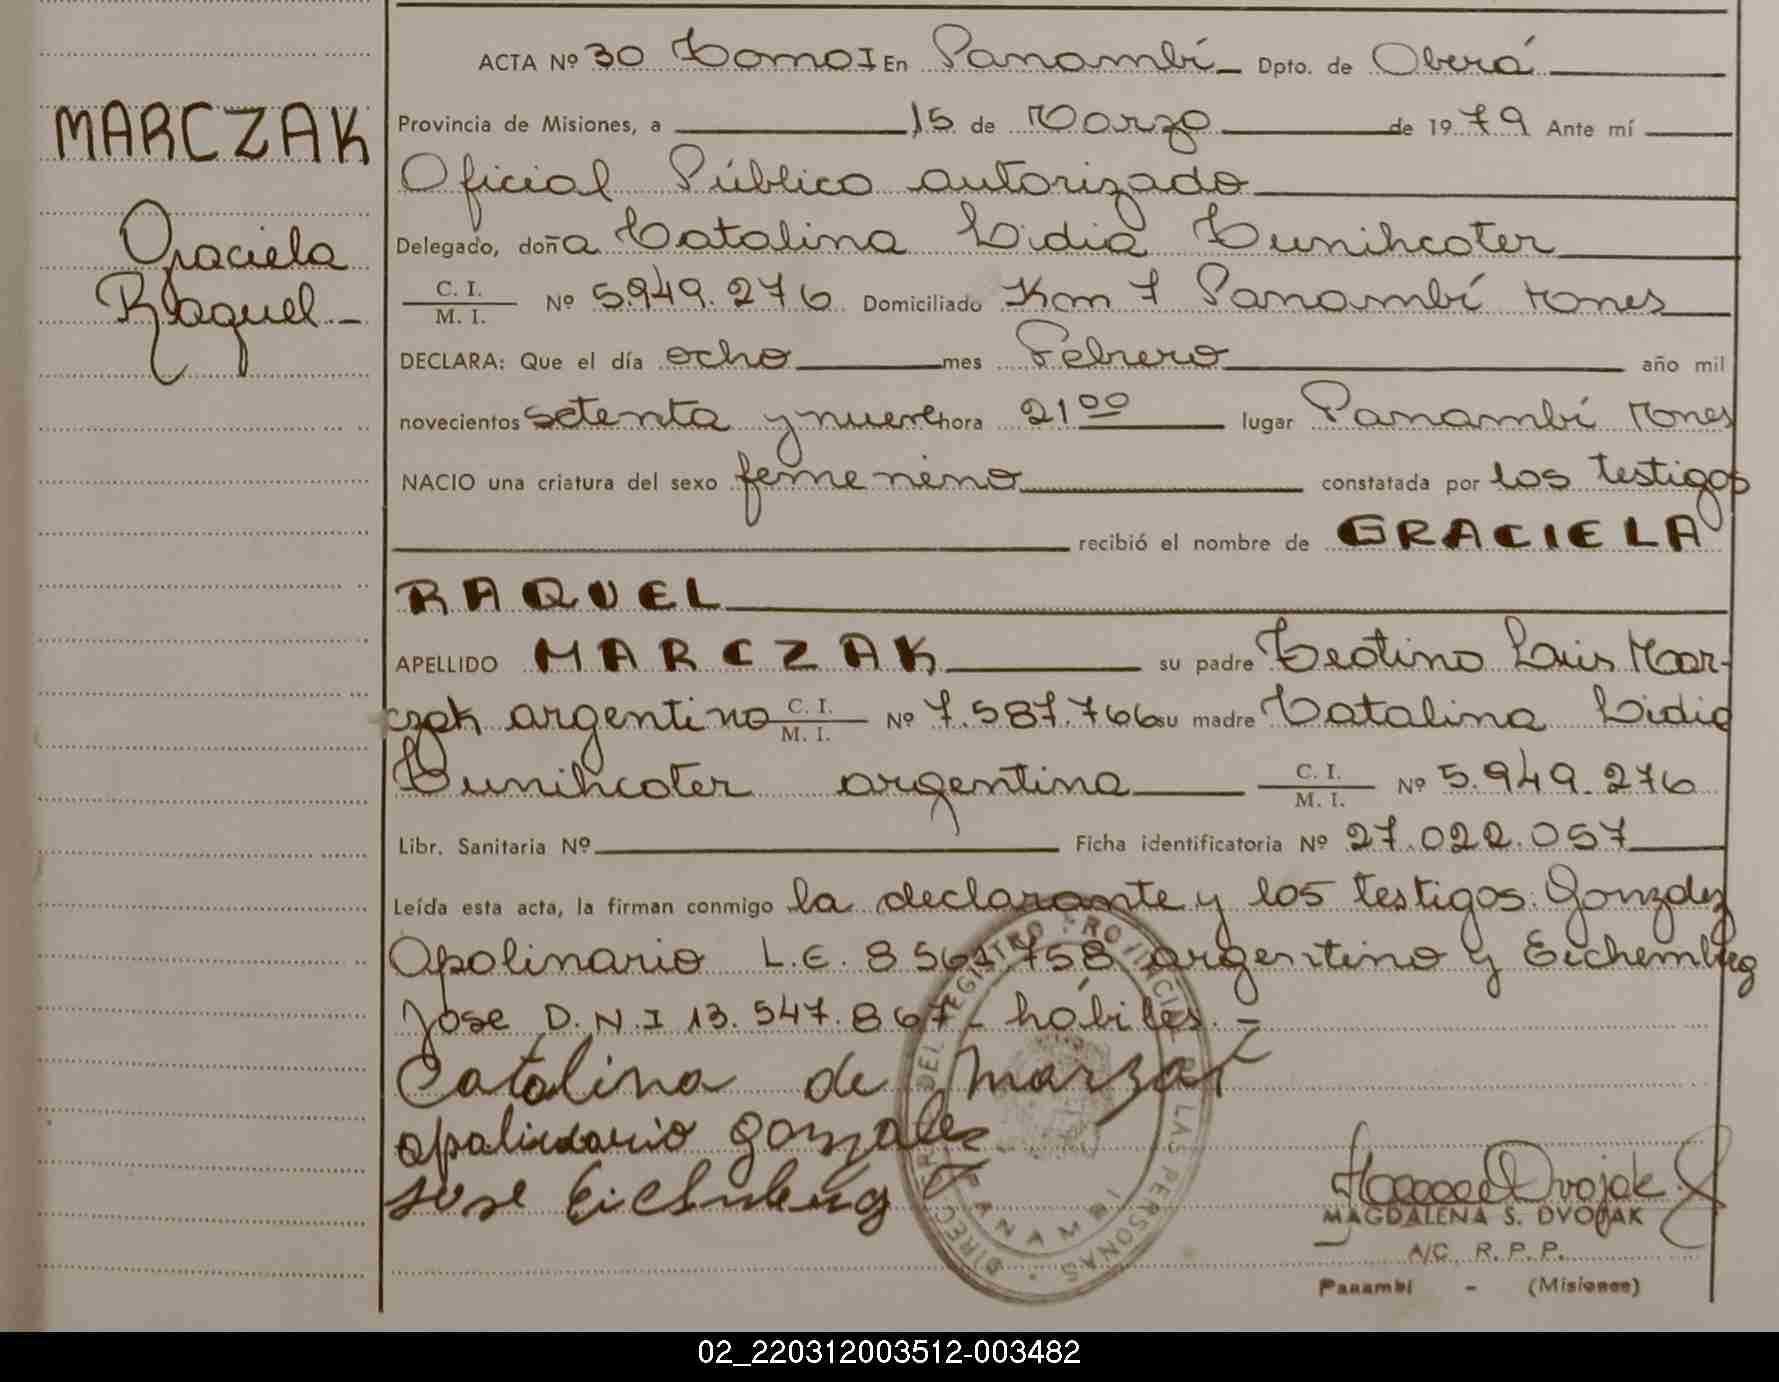 MARCZAK
Graciela
Raquel.-
ACTA Nº 30 Tomo I En Panambí Dpto. de Oberá
Provincia de Misiones, a 15 de Marzo de 1979 Ante mí
Oficial Público autorizado
Delegado, doña Catalina Lidia Kunihcoter
C. I. / M. I. Nº 5.949.276 Domiciliado Km 7 Panambí Mones
DECLARA: Que el día ocho mes Febrero año mil
novecientos setenta y nueve hora 21 00 lugar Panambí Mones
NACIO una criatura del sexo femenino constatada por los testigos
recibió el nombre de GRACIELA
RAQUEL
APELLIDO MARCZAK su padre Luis Mar-
czak argentino C. I. / M. I. Nº 7.587.766 su madre Catalina Lidia
Kunihcoter argentina C. I. / M. I. Nº 5.949.276
Libr. Sanitaria Nº Ficha identificatoria Nº 27.022.057
Leída esta acta, la firman conmigo la declarante y los testigos: Gonzalez
Apolinario L.E. 8 561.758 argentino y Eichemberg
Jose D.N.I 13.547.867 - hábiles. -
Catalina de Marzak
apolinario gonzalez
Jose Eichenberg
DIREC. PR. DEL REGISTRO PROVINCIAL DE LAS PERSONAS
PANAMBI
Dvojak
MAGDALENA S. DVOJAK
A/C. R. P. P.
Panambi - (Misiones)
02_220312003512-003482